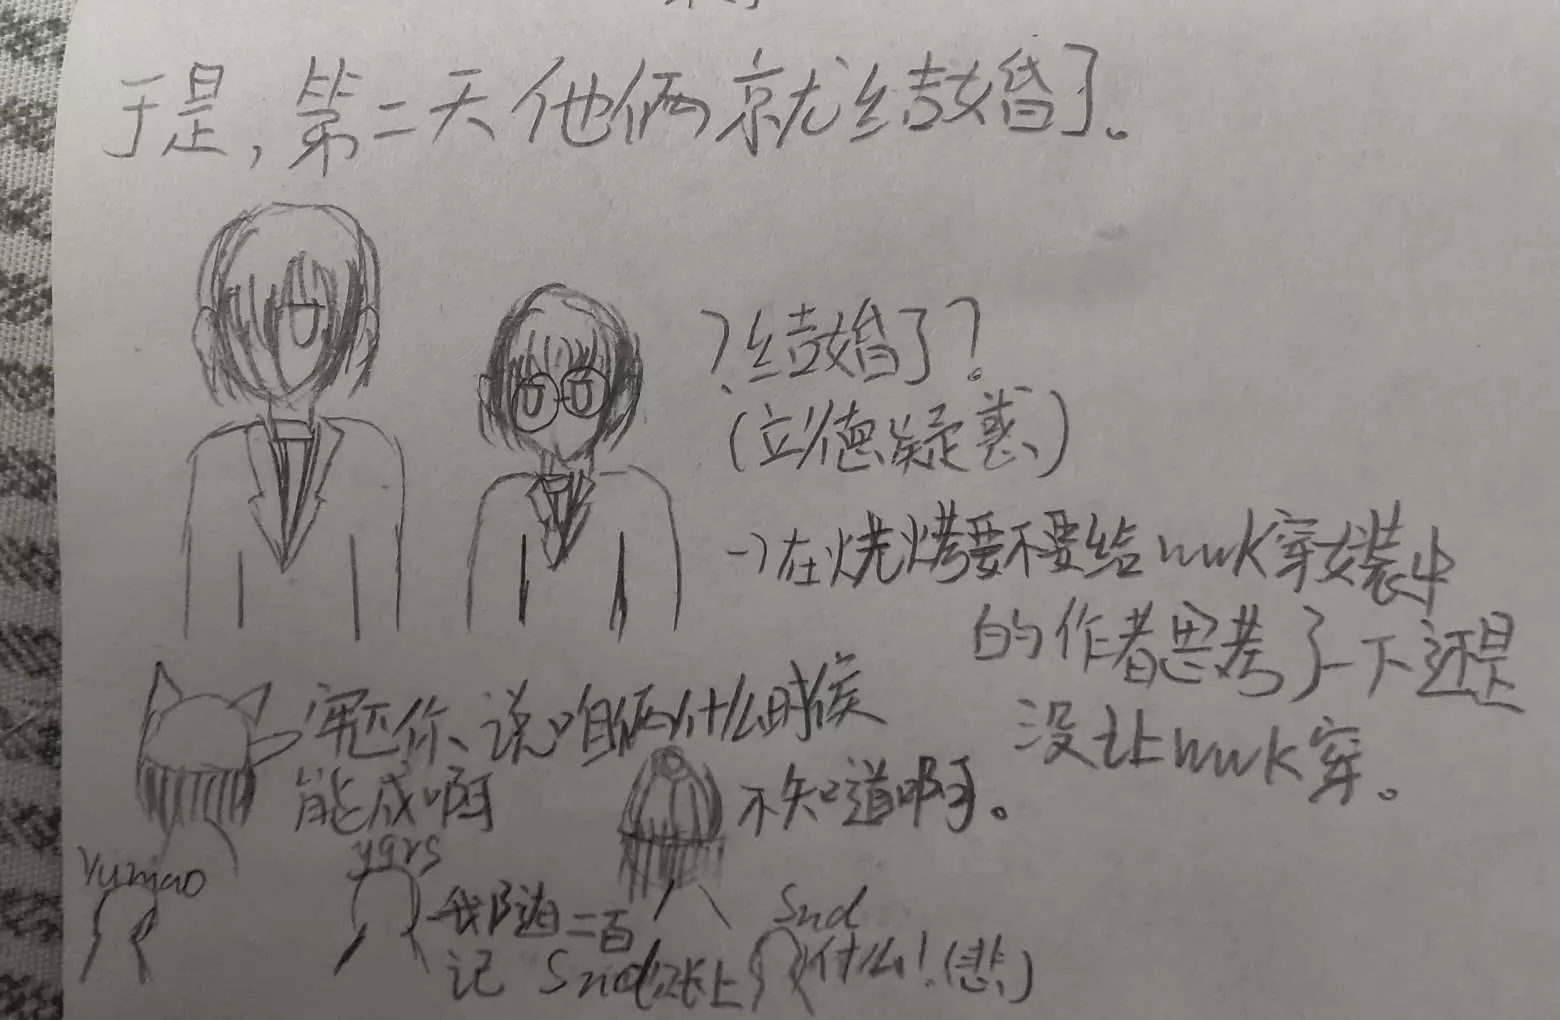 于是，第二天他俩就结婚了。
？结婚了？
（立德疑惑）
→在烧烤要不要给wwk穿女装中
的作者思考了一下还是
没让wwk穿。
你说咱俩什么时候
能成啊
不知道啊。
Yumao
ygrs
我随二百
记Snd账上
Snd
什么！（悲）